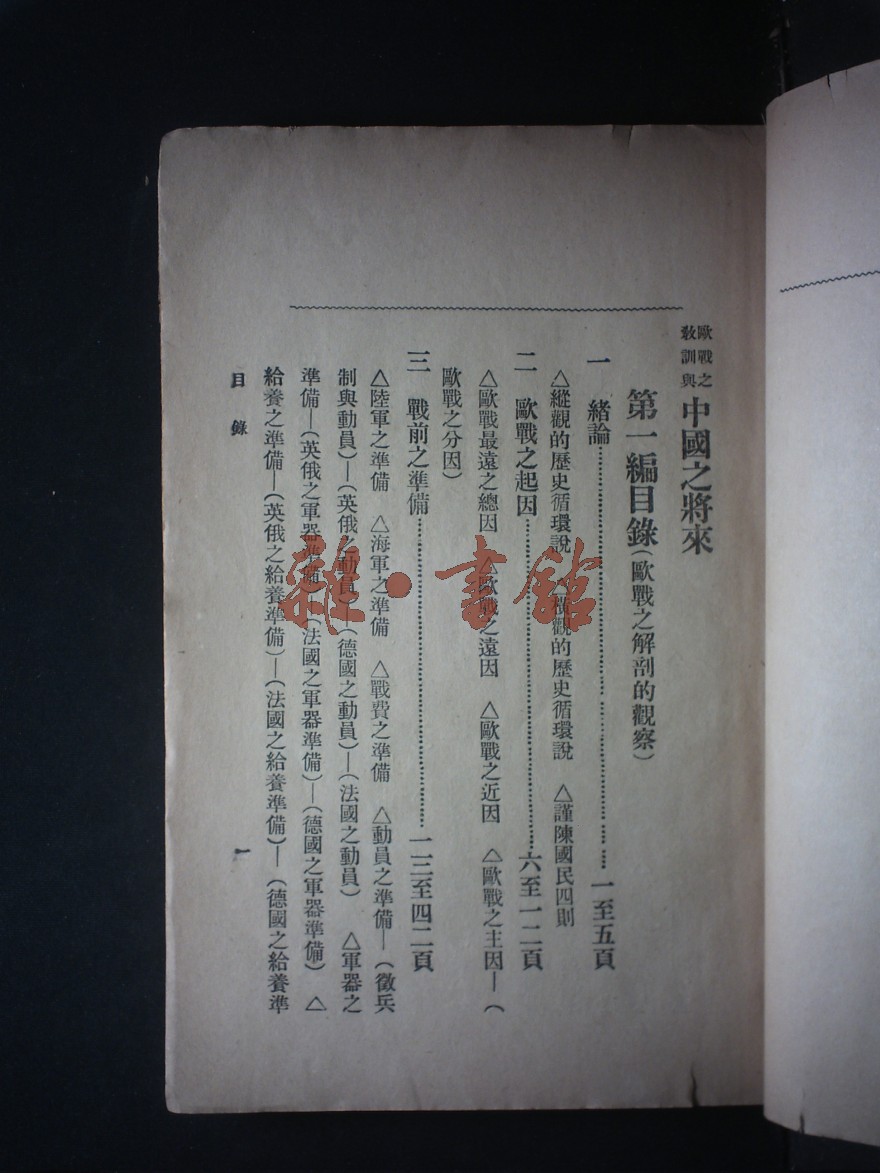 歐戰之教訓與中國之將來
第一編目錄(歐戰之解剖的觀察)
一 緒論……一至五頁
△縱觀的歷史循環說 △橫觀的歷史循環說 △謹陳國民四則
二 歐戰之起因……六至一二頁
△歐戰最遠之總因 △歐戰之遠因 △歐戰之近因 △歐戰之主因—(
歐戰之分因)
三 戰前之準備……一三至四二頁
△陸軍之準備 △海軍之準備 △戰費之準備 △動員之準備—(徵兵
制與動員)—(英俄之動員)—(德國之動員)—(法國之動員) △軍器之
準備—(英俄之軍器準備)—(法國之軍器準備)—(德國之軍器準備) △
給養之準備—(英俄之給養準備)—(法國之給養準備)—(德國之給養準
目錄 一
雜·書館